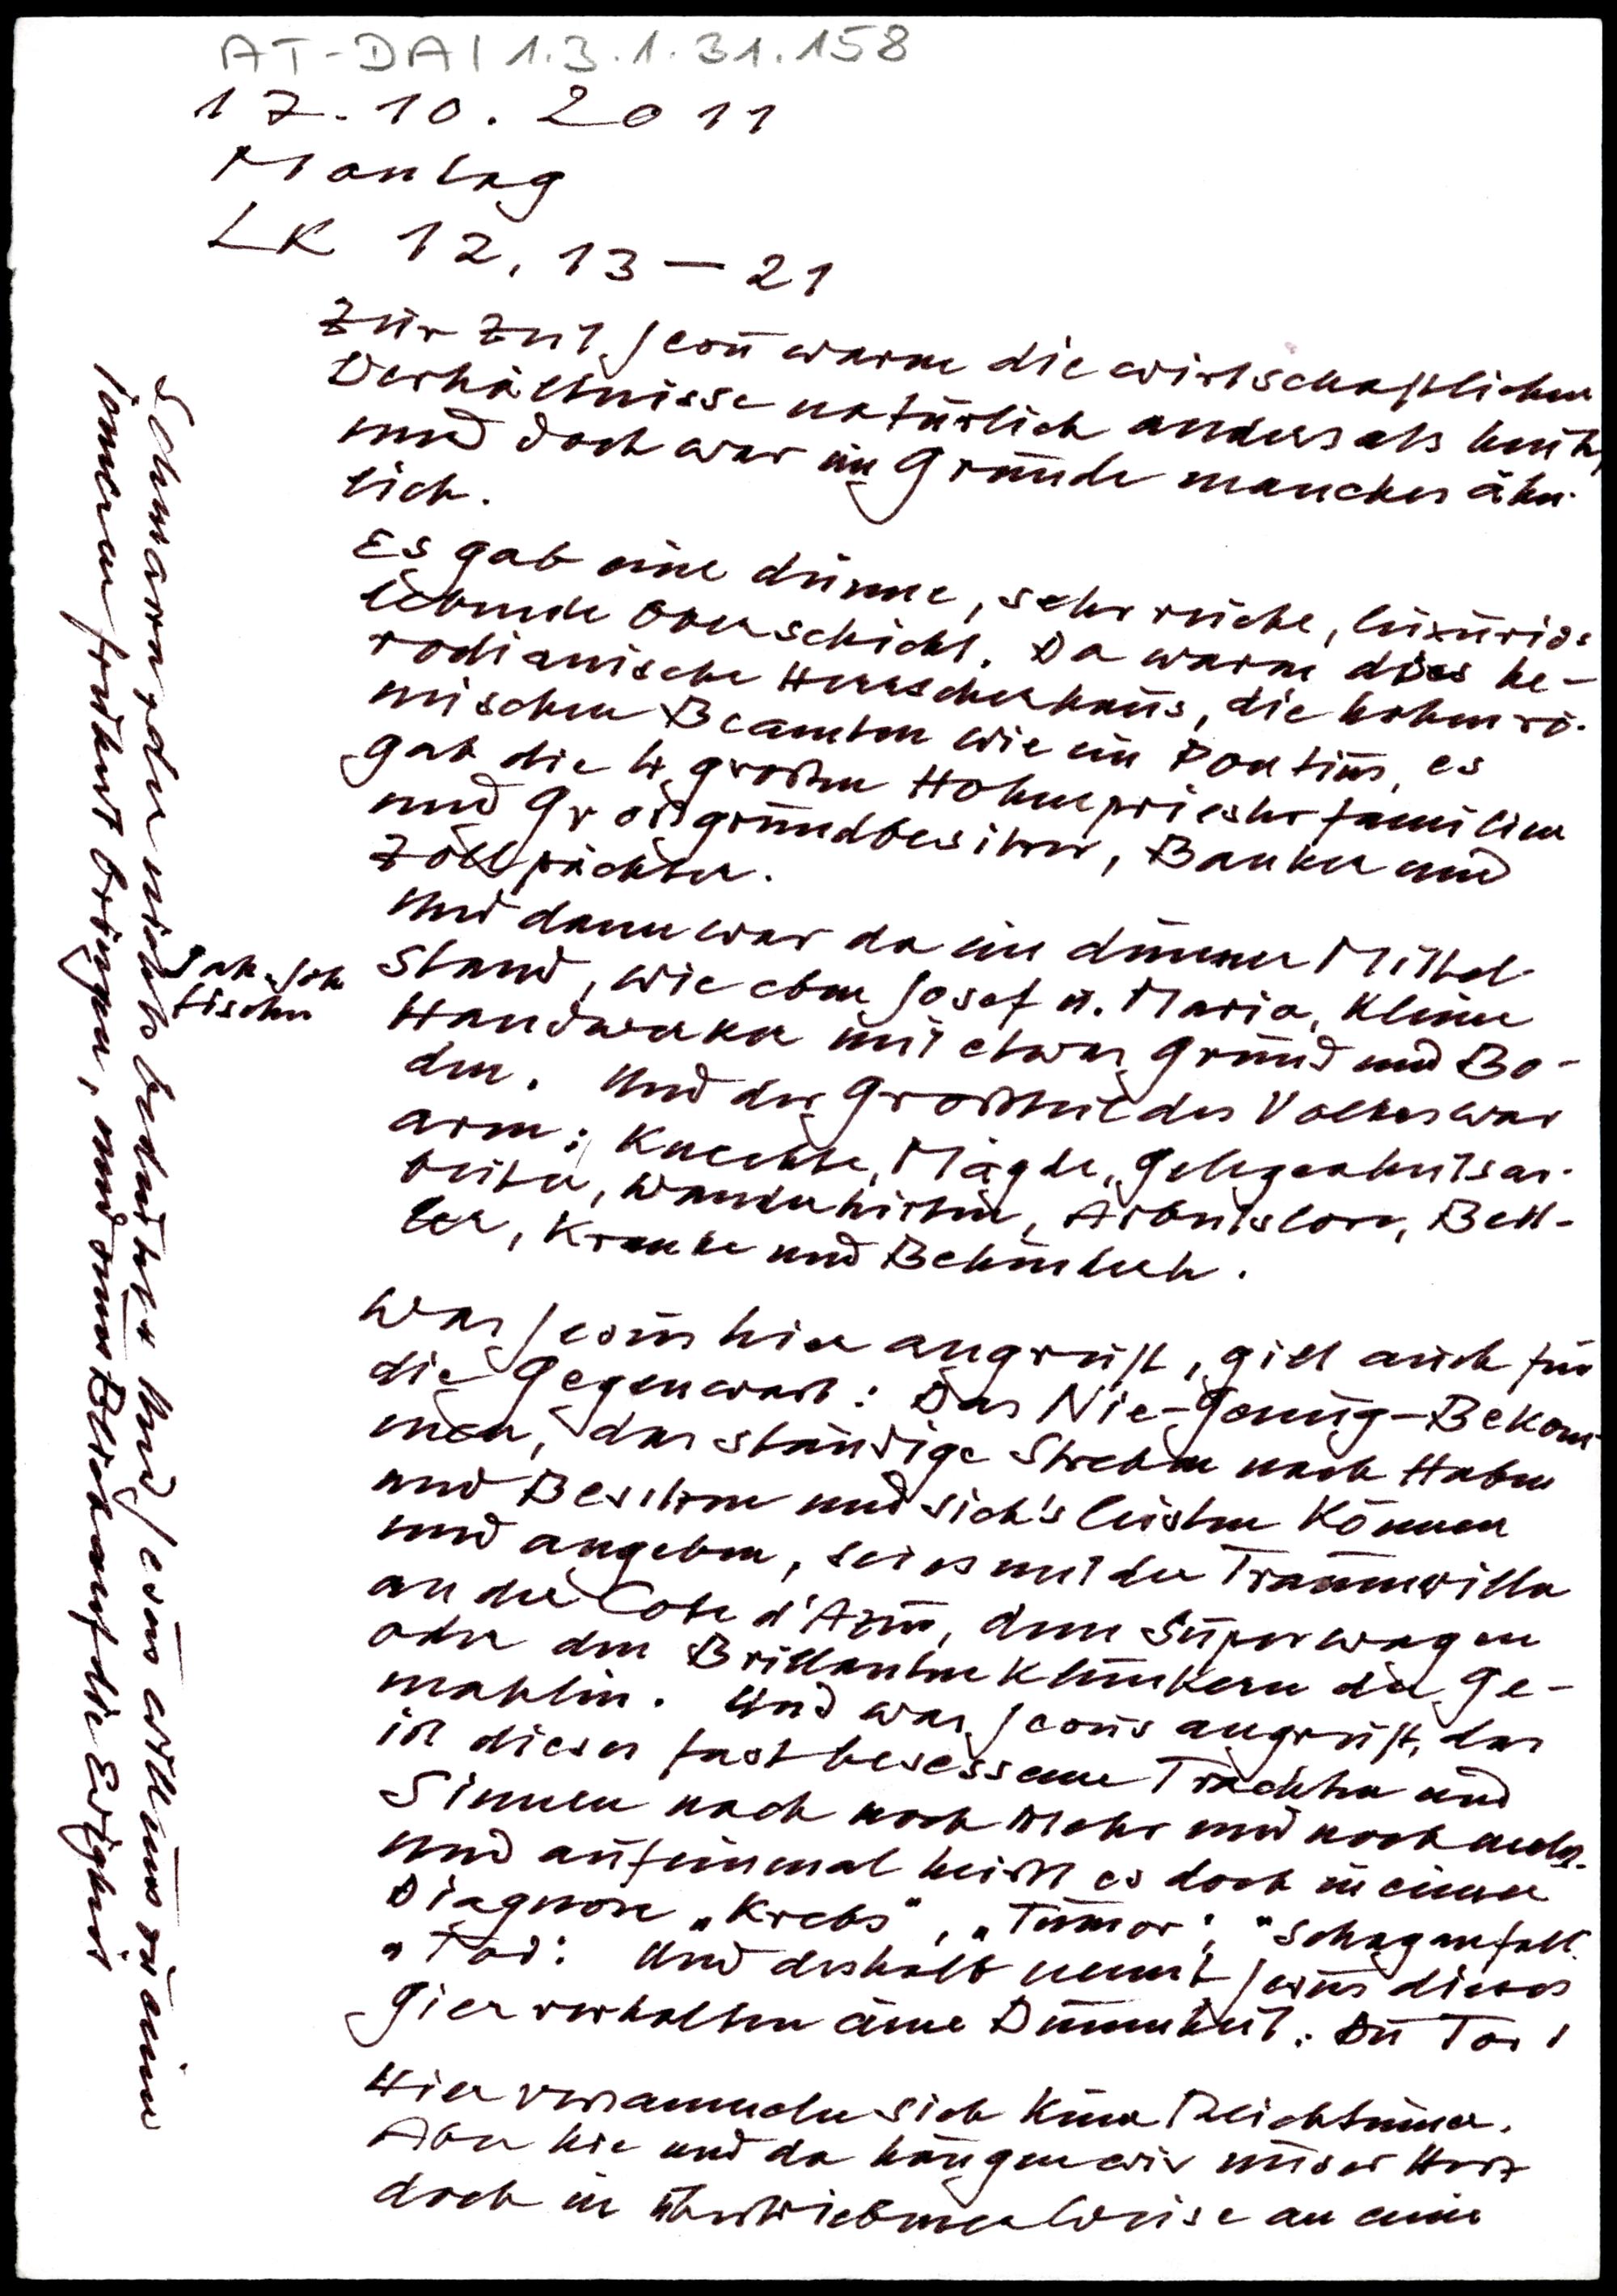 AT-DAI 1.3.1.31.158
17.10.2011
Montag
LK 12, 13–21
Zur Zeit Jesu waren die wirtschaftlichen
Verhältnisse natürlich anders als heute,
und doch war im Grunde manches ähn-
lich.
Es gab eine dünne, sehr reiche, luxuriös
lebende Oberschicht. Da waren das he-
rodianische Herrscherhaus, die hohen rö-
mischen Beamten wie ein Pontius, es
gab die 4 großen Hohenpriesterfamilien
und Großgrundbesitzer, Banker und
Zollpächter.
Und dann war da ein dünner Mittel
stand, wie eben Josef u. Maria, kleine
Handwerker mit etwas Grund und Bo-
den. Und der Großteil des Volkes war
arm: Knechte, Mägde, Gelegenheitsar-
beiter, Wanderhirten, Arbeitslose, Bett-
ler, Kranke und Behinderte.
Was Jesus hier angreift, gilt auch für
die Gegenwart: Das Nie-Genug-Bekom-
men, das ständige Streben nach Haben
und Besitzen und sich's leisten können
und angeben, sei es mit der Traumvilla
an der Cote d'Azur, dem Superwagen
oder den Brillantenklunkern der Ge-
mahlin. Und was Jesus angreift, das
ist dieses fast besessene Trachten und
Sinnen nach noch mehr und noch mehr.
Und auf einmal heißt es doch in einer
Diagnose „Krebs", „Tumor", „Schaganfall"
„Tod". Und deshalb nennt Jesus dieses
Gierverhalten eine Dummheit. Du Tor!
Hier versammeln sich keine Reichtümer.
Aber hie und da hängen wir unser Herz
doch in übertriebener Weise an eine
Jak. Joh
Fischer
Schmarrn, der nichts bedeutet. Und Jesus will uns zu einer
inneren Freiheit bringen, und unser Blick auf die Ewigkeit